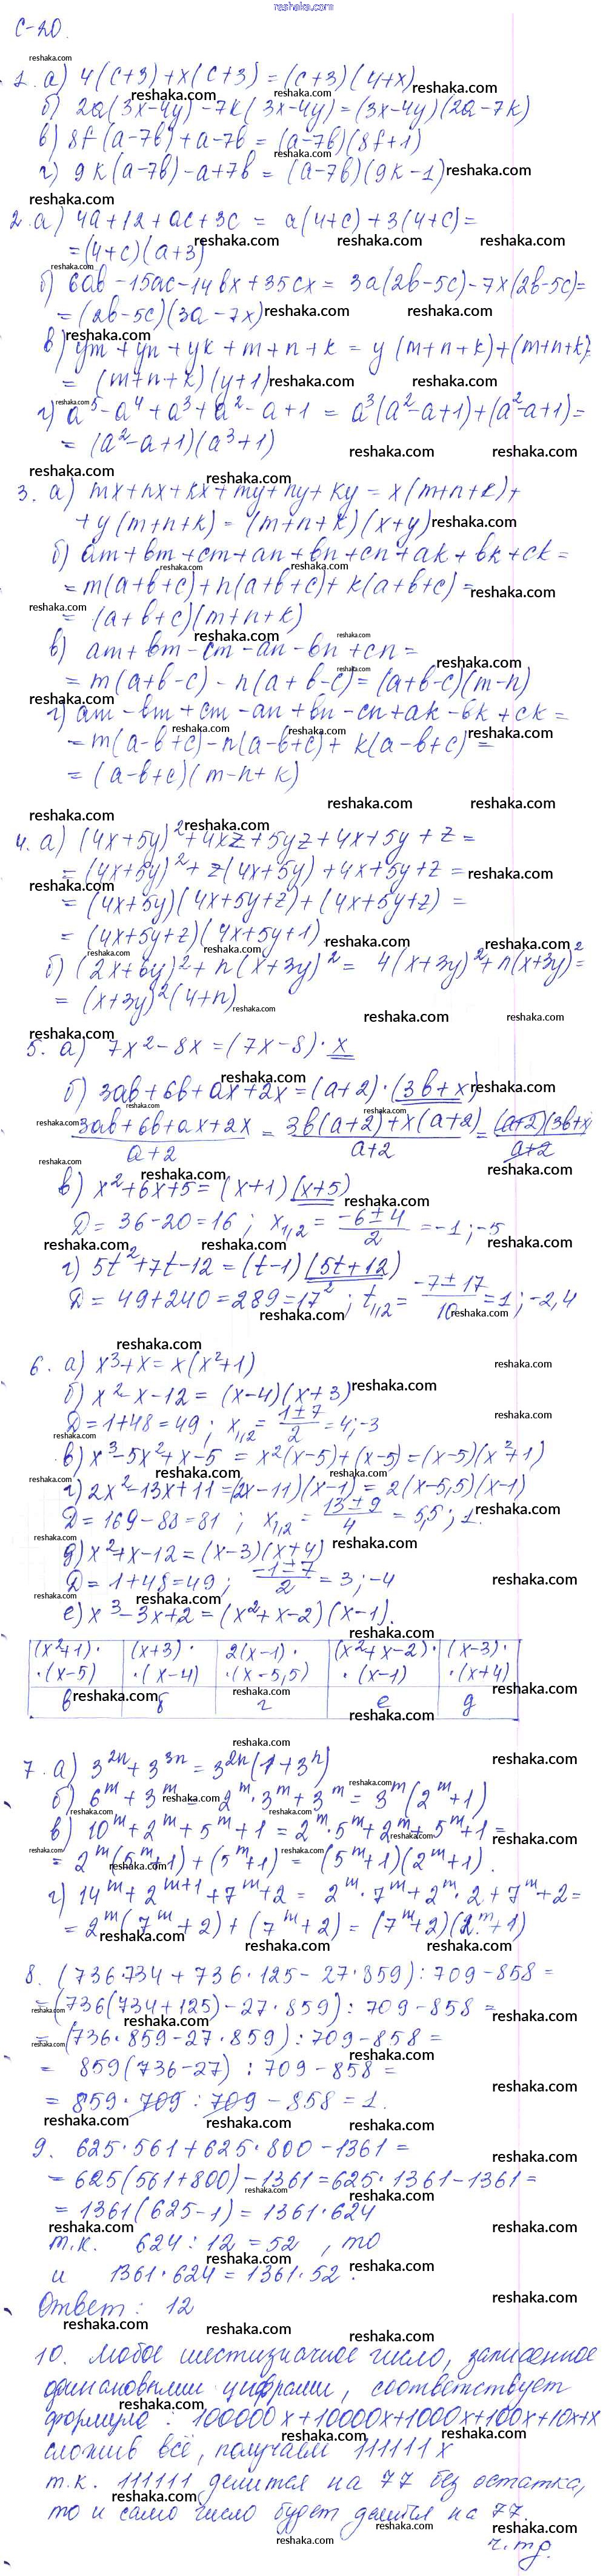 reshaka.com
С-20.
1. а) 4(c+3)+x(c+3)=(c+3)(4+x)
б) 2a(3x-4y)-7k(3x-4y)=(3x-4y)(2a-7k)
в) 8f(a-7b)+a-7b=(a-7b)(8f+1)
г) 9k(a-7b)-a+7b=(a-7b)(9k-1)
2. а) 4a+12+ac+3c=a(4+c)+3(4+c)=
=(4+c)(a+3)
б) 6ab-15ac-14bx+35cx=3a(2b-5c)-7x(2b-5c)=
=(2b-5c)(3a-7x)
в) ym+yn+yk+m+n+k=y(m+n+k)+(m+n+k)=
=(m+n+k)(y+1)
г) a⁵-a⁴+a³+a²-a+1=a³(a²-a+1)+(a²-a+1)=
=(a²-a+1)(a³+1)
3. а) mx+nx+kx+my+ny+ky=x(m+n+k)+
+y(m+n+k)=(m+n+k)(x+y)
б) am+bm+cm+an+bn+cn+ak+bk+ck=
=m(a+b+c)+n(a+b+c)+k(a+b+c)=
=(a+b+c)(m+n+k)
в) am+bm-cm-an-bn+cn=
=m(a+b-c)-n(a+b-c)=(a+b-c)(m-n)
г) am-bm+cm-an+bn-cn+ak-bk+ck=
=m(a-b+c)-n(a-b+c)+k(a-b+c)=
=(a-b+c)(m-n+k)
4. а) (4x+5y)²+4xz+5yz+4x+5y+z=
=(4x+5y)²+z(4x+5y)+4x+5y+z=
=(4x+5y)(4x+5y+z)+(4x+5y+z)=
=(4x+5y+z)(4x+5y+1)
б) (2x+6y)²+n(x+3y)²=4(x+3y)²+n(x+3y)²=
=(x+3y)²(4+n)
5. а) 7x²-8x=(7x-8)·x
б) 3ab+6b+ax+2x=(a+2)·(3b+x)
(3ab+6b+ax+2x)/(a+2)=(3b(a+2)+x(a+2))/(a+2)=((a+2)(3b+x))/(a+2)
в) x²+6x+5=(x+1)(x+5)
D=36-20=16; x₁,₂=(-6±4)/2=-1;-5
г) 5t²+7t-12=(t-1)(5t+12)
D=49+240=289=17²; t₁,₂=(-7±17)/10=1;-2,4
6. а) x³+x=x(x²+1)
б) x²-x-12=(x-4)(x+3)
D=1+48=49; x₁,₂=(1±7)/2=4;-3
в) x³-5x²+x-5=x²(x-5)+(x-5)=(x-5)(x²+1)
г) 2x²-13x+11=(2x-11)(x-1)=2(x-5,5)(x-1)
D=169-88=81; x₁,₂=(13±9)/4=5,5;1.
д) x²+x-12=(x-3)(x+4)
D=1+48=49; (-1±7)/2=3;-4
е) x³-3x+2=(x²+x-2)(x-1).
(x²+1)· (x+3)· 2(x-1)· (x²+x-2)· (x-3)·
·(x-5) ·(x-4) ·(x-5,5) ·(x-1) ·(x+4)
в б г е д
7. а) 3²ⁿ+3³ⁿ=3²ⁿ(1+3ⁿ)
б) 6ᵐ+3ᵐ=2ᵐ·3ᵐ+3ᵐ=3ᵐ(2ᵐ+1)
в) 10ᵐ+2ᵐ+5ᵐ+1=2ᵐ·5ᵐ+2ᵐ+5ᵐ+1=
=2ᵐ(5ᵐ+1)+(5ᵐ+1)=(5ᵐ+1)(2ᵐ+1).
г) 14ᵐ+2ᵐ⁺¹+7ᵐ+2=2ᵐ·7ᵐ+2ᵐ·2+7ᵐ+2=
=2ᵐ(7ᵐ+2)+(7ᵐ+2)=(7ᵐ+2)(2ᵐ+1)
8. (736·734+736·125-27·859):709-858=
=(736(734+125)-27·859):709-858=
=(736·859-27·859):709-858=
=859(736-27):709-858=
=859·709:709-858=1.
9. 625·561+625·800-1361=
=625(561+800)-1361=625·1361-1361=
=1361(625-1)=1361·624
т.к. 624:12=52, то
и 1361·624=1361·52.
Ответ: 12
10. Любое шестизначное число, записанное
одинаковыми цифрами, соответствует
формуле: 100000x+10000x+1000x+100x+10x+x
сложив всё, получаем 111111x
т.к. 111111 делится на 77 без остатка,
то и само число будет делится на 77.
ч.т.д.